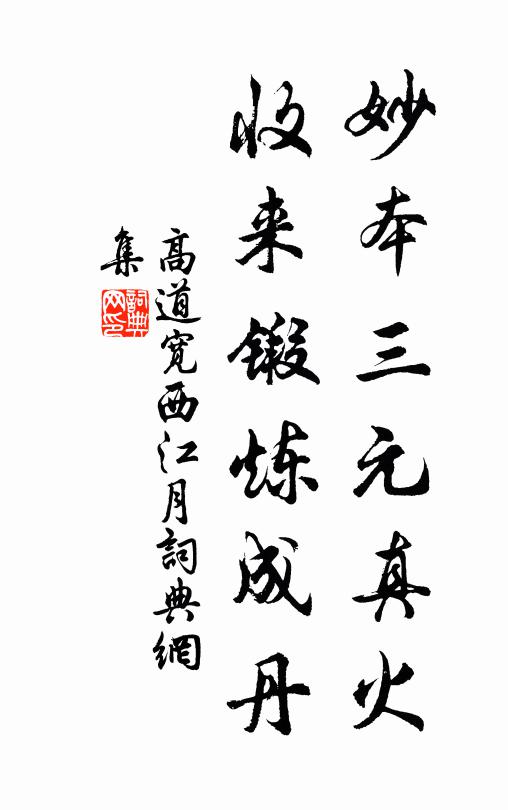 妙本三元真火
收来锻炼成丹
高道宽西江月詞典網
集
詞典
网印